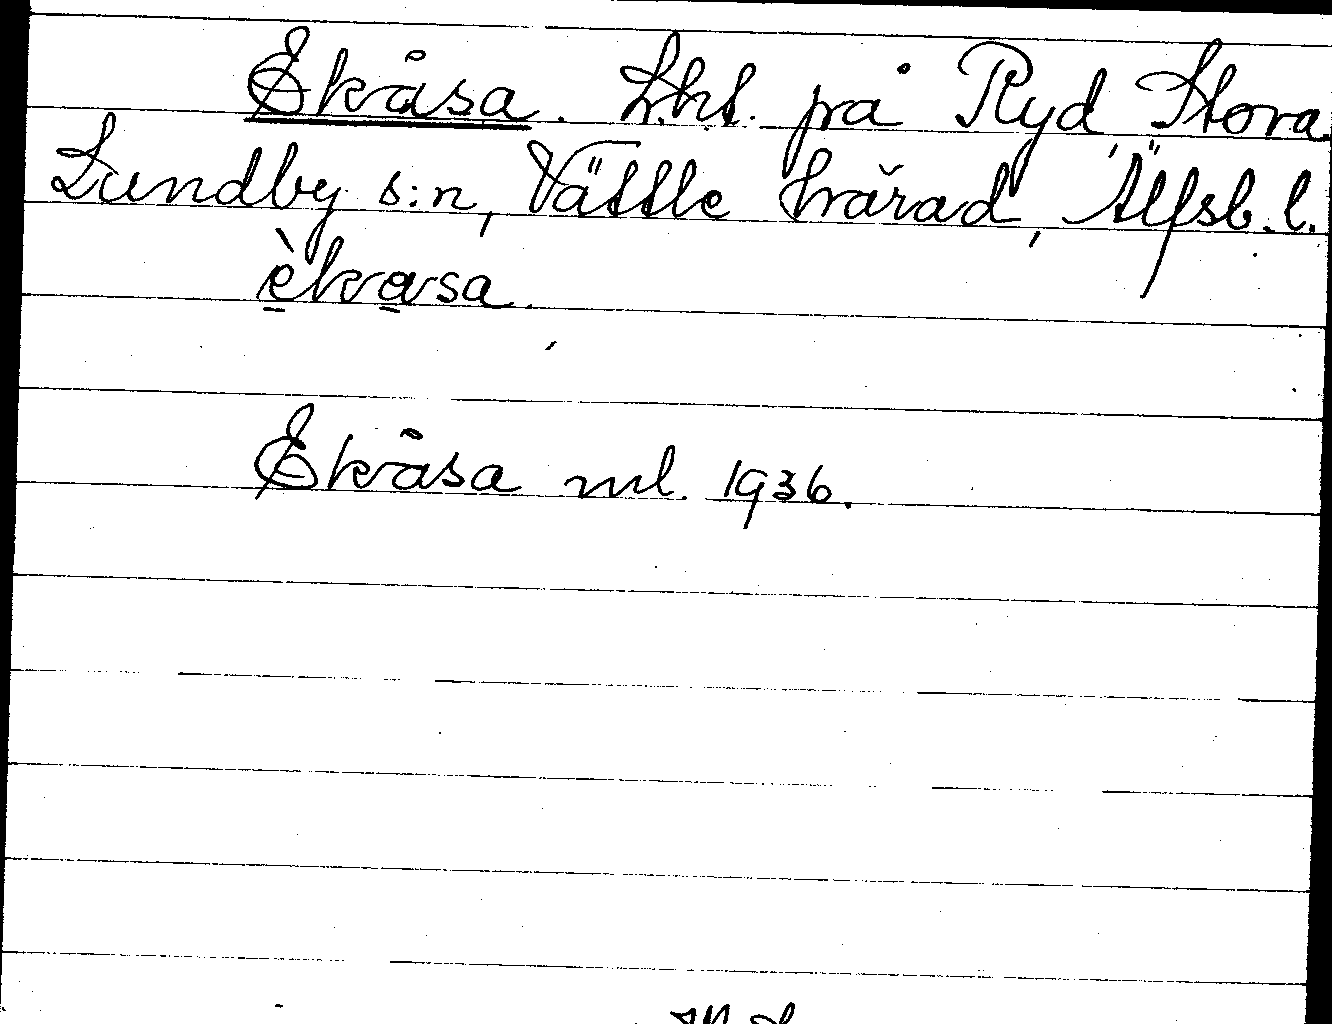 Ekåsa. Lht. på Ryd, Stora
Lundby s:n, Vättle härad, Älfsb. l.
èkasa.
Ekåsa ml. 1936.